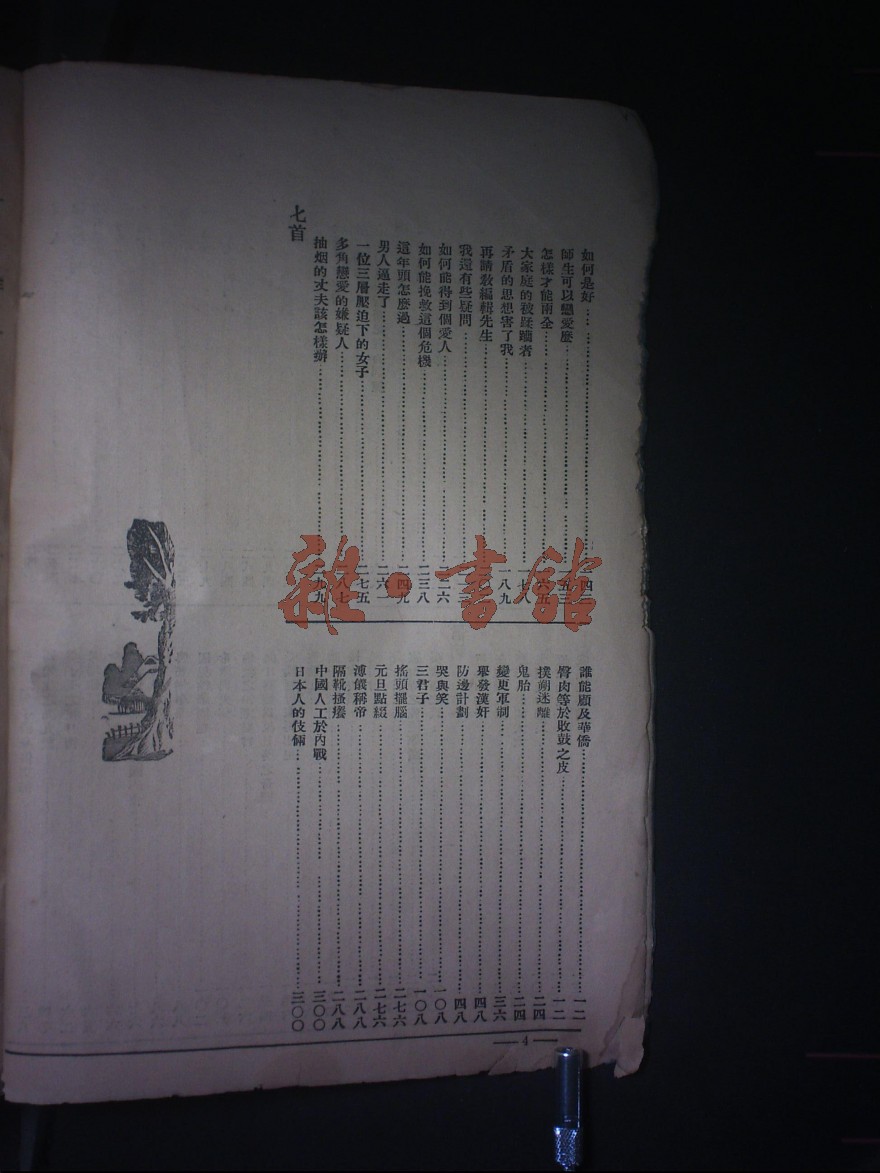 如何是好
師生可以戀愛麼……五三
怎樣才能兩全……六五
大家庭的被蹂躪者……一七八
矛盾的思想害了我……一八九
再請敎編輯先生
我還有些疑問
如何能得到個愛人……二二六
如何能挽救這個危機……二三八
這年頭怎麼過……二四九
男人逼走了……二六一
一位三層壓迫下的女子……二七五
多角戀愛的嫌疑人……二八七
抽烟的丈夫該怎樣辦……二九九
七首
誰能顧及華僑……一二
臀肉等於敗鼓之皮……一二
撲朔迷離……二四
鬼胎……二四
變更軍制……三六
舉發漢奸……四八
防邊計劃……四八
哭與笑……一〇八
三君子……一〇八
搖頭擺腦……二七六
元旦點綴……二七六
溥儀稱帝……二八八
隔靴搔癢……二八八
中國人工於內戰……三〇〇
日本人的伎倆……三〇〇
— 4 —
雜·書館